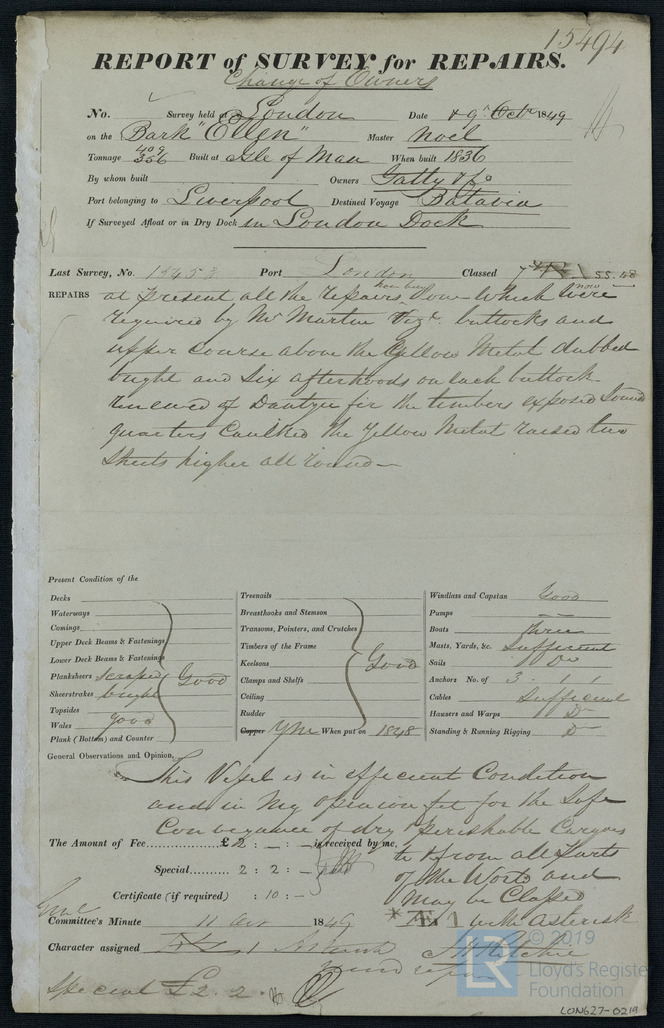 15494
REPORT of SURVEY for REPAIRS.
Change of Owners
No. Survey held at London Date 9 Octr 1849
on the Bark "Ellen" Master Noel
Tonnage 409 356 Built at Isle of Man When built 1836
By whom built Owners Tatty & Co
Port belonging to Liverpool Destined Voyage Batavia
If Surveyed Afloat or in Dry Dock in London Dock
Last Survey, No. 15453 Port London Classed 55.58
REPAIRS at present all the repairs have been done which were now
required by Mr Martin Vizt. buttocks and
upper course above the Yellow Metal dubbed
bright and six afterhoods on each buttock
renewed of Dantzic fir the timbers exposed sound
quarters Caulked the Yellow Metal raised two
sheets higher all round
Present Condition of the
Decks
Waterways
Comings
Upper Deck Beams & Fastenings
Lower Deck Beams & Fastenings
Planksheers scraped
Sheerstrakes bright
Topsides
Wales good
Plank (Bottom) and Counter
Good
Treenails
Breasthooks and Stemson
Transoms, Pointers, and Crutches
Timbers of the Frame
Keelsons
Clamps and Shelfs
Ceiling
Rudder
Copper YM When put on 1848
Good
Windlass and Capstan Good
Pumps
Boats three
Masts, Yards, &c. Sufficient
Sails Do
Anchors No. of 3. 1. 1
Cables Sufficient
Hawsers and Warps Do
Standing & Running Rigging Do
General Observations and Opinion,
This Vessel is in efficient Condition
and in my opinion fit for the safe
Conveyance of dry & perishable Cargoes
to & from all parts
of the World and
may be Classed
* Æ 1 with asterisk
The Amount of Fee £ 2 : - : - is received by me,
Special 2 : 2 : -
Certificate (if required) : 10 : -
Committee's Minute 11 1849
Character assigned
Special £2.2.
© 2019
Lloyd's Register
Foundation
LON627-0219